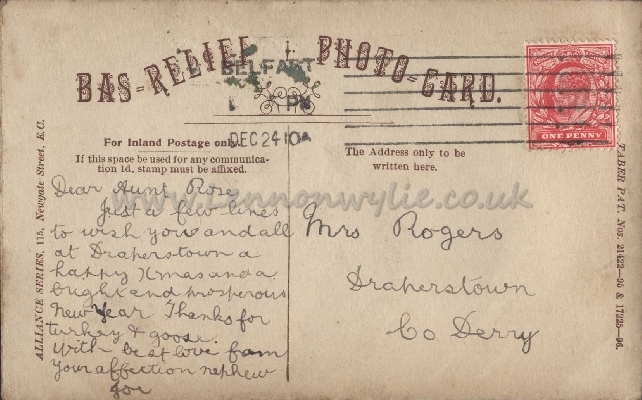 BAS-RELIEF PHOTO-CARD.
BELFART
PM
DEC 24 10
ONE PENNY
For Inland Postage only.
If this space be used for any communica-
tion 1d. stamp must be affixed.
The Address only to be
written here.
ALLIANCE SERIES, 115, Newgate Street, E.C.
TABER PAT. Nos. 21422—95 & 17225—96.
www.Lennonwylie.co.uk
Dear Aunt Rose
Just a few lines
to wish you and all
at Draperstown a
happy Xmas and a
bright and prosperous
New Year Thanks for
turkey & goose.
With best love from
Your affection nephew
Joe
Mrs Rogers
Draperstown
Co Derry